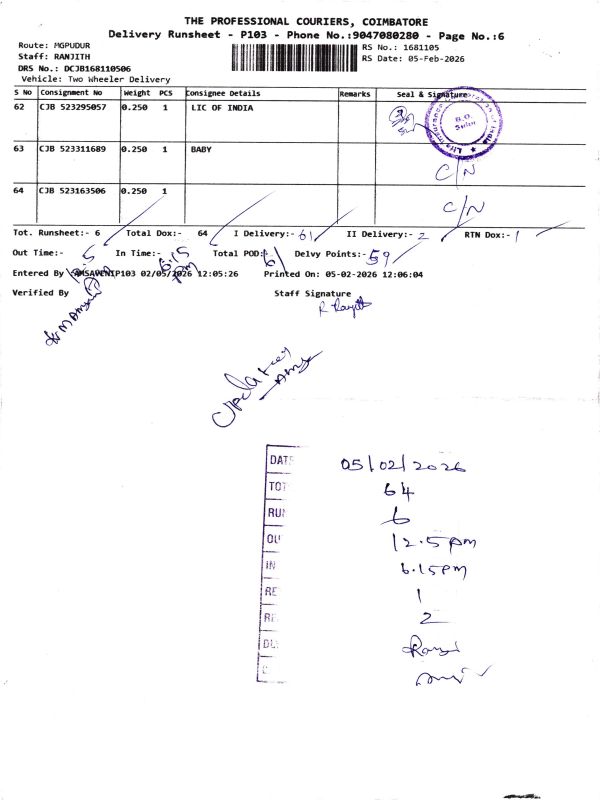 THE PROFESSIONAL COURIERS, COIMBATORE
Delivery Runsheet - P103 - Phone No.:9047080280 - Page No.:6
Route: MGPUDUR
Staff: RANJITH
DRS No.: DCJB168110506
Vehicle: Two Wheeler Delivery
RS No.: 1681105
RS Date: 05-Feb-2026
S No Consignment No Weight PCS Consignee Details Remarks Seal & Signature
62 CJB 523295057 0.250 1 LIC OF INDIA
63 CJB 523311689 0.250 1 BABY C/N
64 CJB 523163506 0.250 1 C/N
Tot. Runsheet:- 6 Total Dox:- 64 I Delivery:- 61 II Delivery:- 2 RTN Dox:- 1
Out Time:- 12.5 In Time:- 6.15 pm Total POD:- 61 Delvy Points:- 59
Entered By 02/05/2026 12:05:26 Printed On: 05-02-2026 12:06:04
Verified By Staff Signature
DATE 05/02/2026
TOT 64
RUN 6
OU 12.5pm
IN 6.15pm
RE 1
RE 2